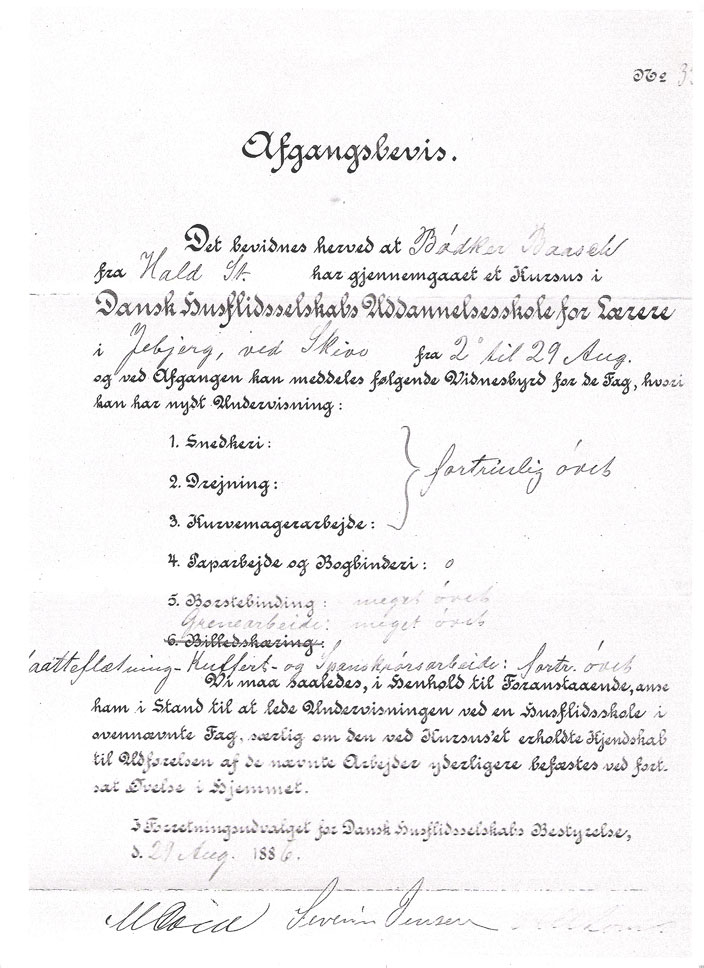 No 3
Afgangsbevis.
Det bevidnes herved at Bødker Baasch
fra Hald St. har gjennemgaaet et Kursus i
Dansk Husflidsselskabs Uddannelsesskole for Lærere
i Jebjerg, ved Skive fra 2 til 29 Aug.
og ved Afgangen kan meddeles følgende Vidnesbyrd for de Fag, hvori
han har nydt Undervisning:
1. Snedkeri:
2. Drejning: fortrinlig øvet
3. Kurvemagerarbejde:
4. Paparbejde og Bogbinderi: o
5. Børstebinding: meget øvet
Grenearbeide: meget øvet
6. Billedskæring:
Kuffert- og Spanskrørsarbeide: fortr. øvet
Vi maa saaledes, i Henhold til Foranstaaende, anse
ham i Stand til at lede Undervisningen ved en Husflidsskole i
ovennævnte Fag, særlig om den ved Kursus'et erholdte Kjendskab
til Udførelsen af de nævnte Arbejder yderligere befæstes ved fort-
sat Øvelse i Hjemmet.
I Forretningsudvalget for Dansk Husflidsselskabs Bestyrelse,
d. 29 Aug. 1886.
Severin Jensen